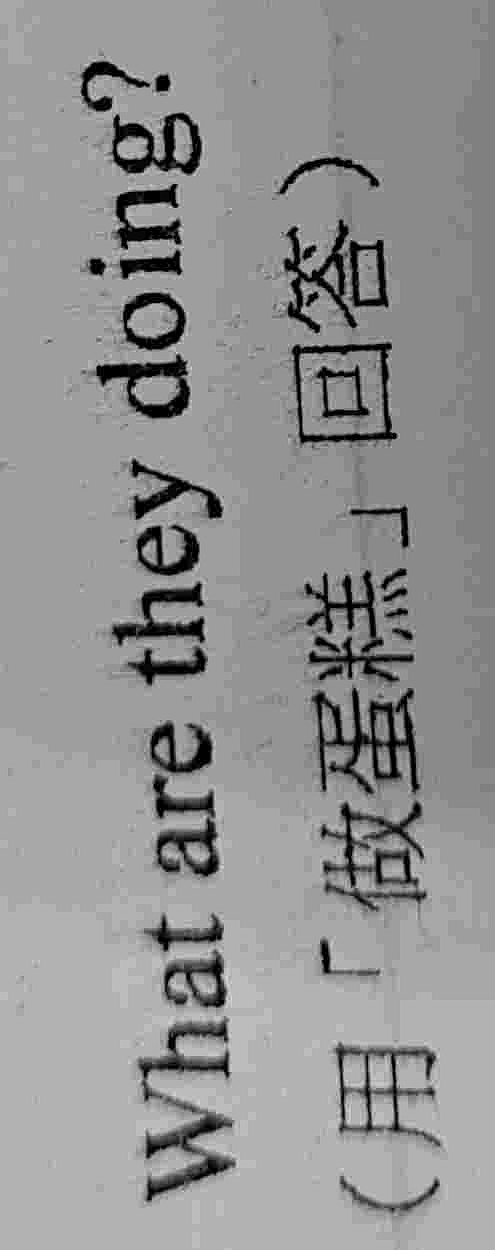 What are they doing?
(用「做蛋糕」回答)